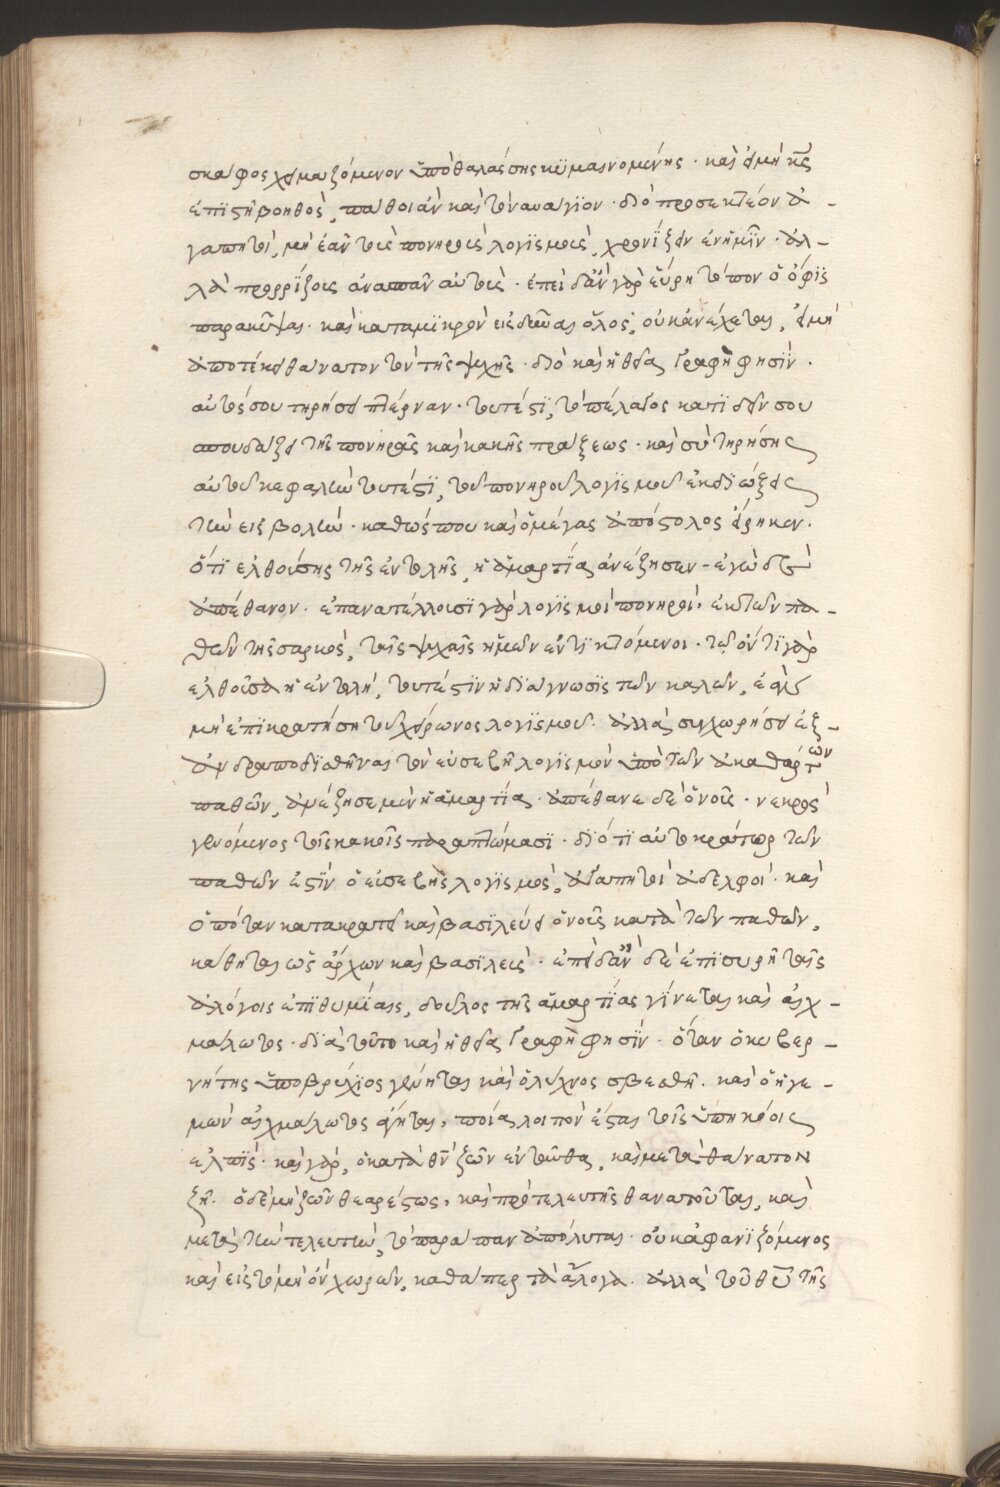 σκάφος χειμαζόμενον ὑπὸ θαλάσσης κυμαινομένης · καὶ εἰ μὴ κ̅ς̅
ἐπιστῆ βοηθὸς, πάθοι ἂν καὶ τὸ ναυάγιον · διὸ προσεκτέον ἀ-
γαπητοὶ, μὴ ἐᾶν τοὺς πονηροὺς λογισμοὺς, χρονίζειν ἐν ἡμῖν · ἀλ-
λὰ προρρίζους ἀνασπᾶν αὐτοὺς · ἐπειδὰν γὰρ εὕρῃ τόπον ὁ ὄφις
παρακῦψαι · καὶ καταμικρὸν εἰσδῦναι ὅλος, οὐκ ἀνέχεται, εἰ μὴ
ἀποτέκει θάνατον τὸν τῆς ψυχῆς · διὸ καὶ ἡ θεία γραφὴ φησὶν ·
αὐτός σου τηρήσει πτέρναν · τουτέστι, τὸ τέλος κατιδεῖν σου
σπουδάζει τῆς πονηρᾶς καὶ κακῆς πράξεως · καὶ σὺ τηρήσῃς
αὐτοῦ κεφαλὴν τουτέστι, τοῦ πονηροῦ λογισμοῦ ἐκδιώξεις
τὴν εἰσβολὴν · καθώς που καὶ ὁ μέγας ἀπόστολος εἴρηκεν ·
ὅτι ἐλθούσης τῆς ἐντολῆς, ἡ ἁμαρτία ἀνέζησεν - ἐγὼ δὲ
ἀπέθανον · ἐπανατέλλουσι γὰρ λογισμοὶ πονηροὶ ἐκ τῶν πα-
θῶν τῆς σαρκὸς, ταῖς ψυχαῖς ἡμῶν ἐντικτόμενοι · τῷ ὄντι γὰρ
ἐλθοῦσα ἡ ἐντολὴ, τουτέστιν ἡ διάγνωσις τῶν καλῶν, ἐὰν
μὴ ἐπικρατήσῃ τοῦ χείρωνος λογισμοῦ · ἀλλὰ συγχωρήσει ἐξ-
ανδραποδισθῆναι τὸν εὐσεβῆ λογισμὸν ὑπὸ τῶν ἀκαθάρτων
παθῶν, ἀνέζησε μὲν ἡ ἁμαρτία · ἀπέθανε δὲ ὁ νοῦς · νεκρὸς
γενόμενος τοῖς κακοῖς παραπτώμασι · διότι αὐτοκράτωρ τῶν
παθῶν ἐστὶν ὁ εὐσεβὴς λογισμὸς, ἀγαπητοὶ ἀδελφοὶ · καὶ
ὁπόταν κατακρατεῖ καὶ βασιλεύει ὁ νοῦς κατὰ τῶν παθῶν,
κάθηται ὡς ἄρχων καὶ βασιλεὺς · ἐπειδὰν δὲ ἐπισυρῆ ταῖς
ἀλόγοις ἐπιθυμίαις, δοῦλος τῆς ἁμαρτίας γίνεται καὶ αἰχ-
μάλωτος · διὰ τοῦτο καὶ ἡ θεία γραφὴ φησὶν · ὅταν ὁ κυβερ-
νήτης ὑποβρύχιος γένηται καὶ ὁ λύχνος σβεσθῆ · καὶ ὁ ἡγε-
μὼν αἰχμάλωτος ἄγηται, ποία λοιπὸν ἔσται τοῖς ὑπηκόοις
ἐλπὶς · καὶ γὰρ, ὁ κατὰ θ̅ν̅ ζῶν ἐνταῦθα, καὶ μετὰ θάνατον
ζῆ · ὁ δὲ μὴ ζῶν θεαρέστως, καὶ πρὸ τελευτῆς θανατοῦται, καὶ
μετὰ τὴν τελευτὴν, τὸ παράπαν ἀπόλυται · οὐκ ἀφανιζόμενος
καὶ εἰς τὸ μὴ ὂν χωρῶν, καθάπερ τὰ ἄλογα · ἀλλὰ τοῦ θ̅υ̅ τῆς